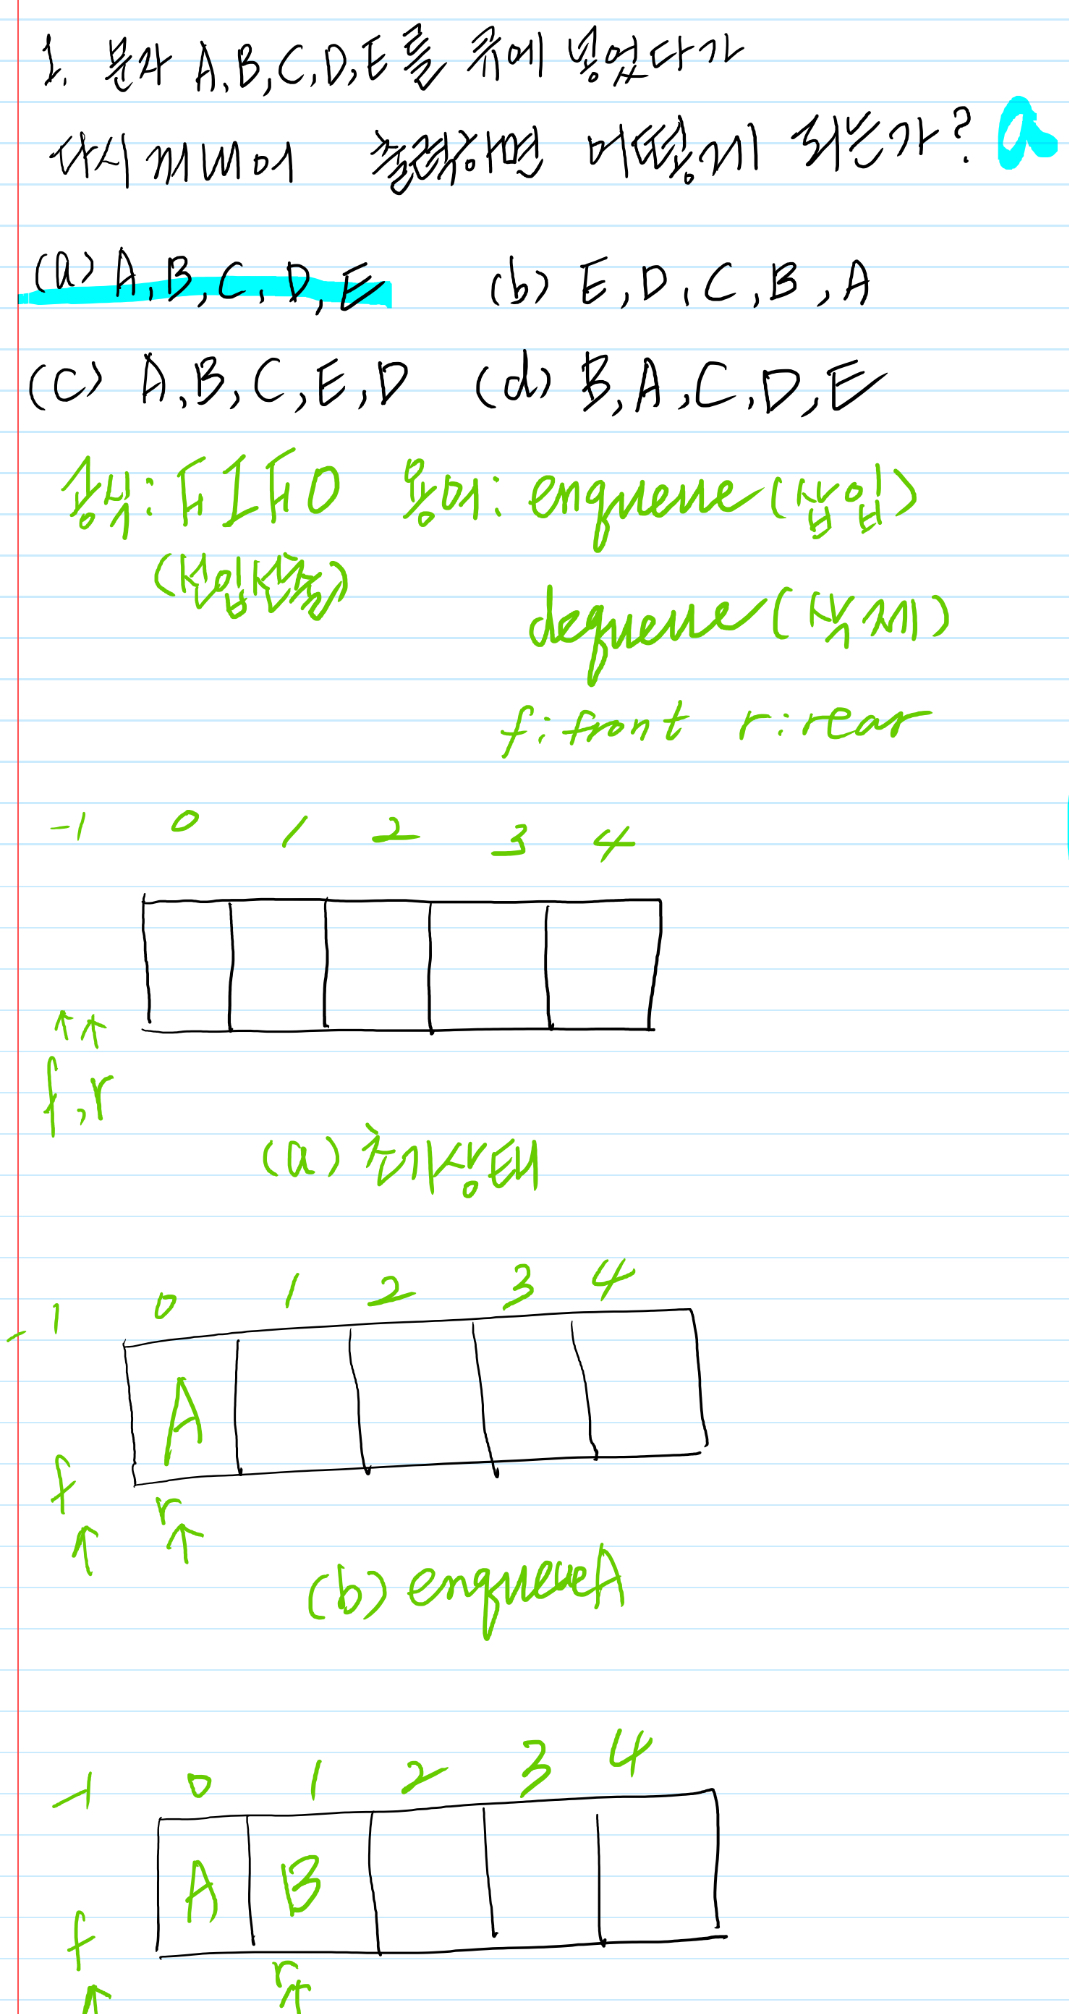 1. 문자 A,B,C,D,E를 큐에 넣었다가
다시 꺼내어 출력하면 어떻게 되는가? a
(a) A,B,C,D,E (b) E,D,C,B,A
(c) A,B,C,E,D (d) B,A,C,D,E
공식: FIFO 용어: enqueue(삽입)
(선입선출)
dequeue(삭제)
f:front r:rear
-1 0 1 2 3 4
f,r
(a) 초기상태
-1 0 1 2 3 4
A
f r
(b) enqueueA
-1 0 1 2 3 4
A B
f
r